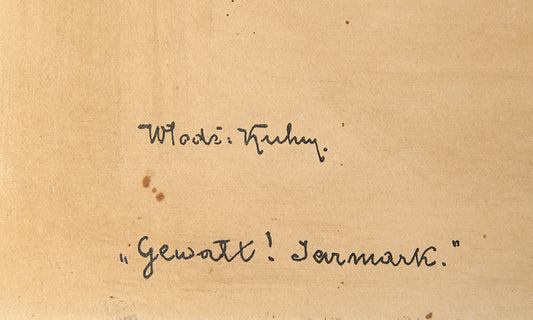 Włodz: Kuhny.
„Gewałt! Jarmark."